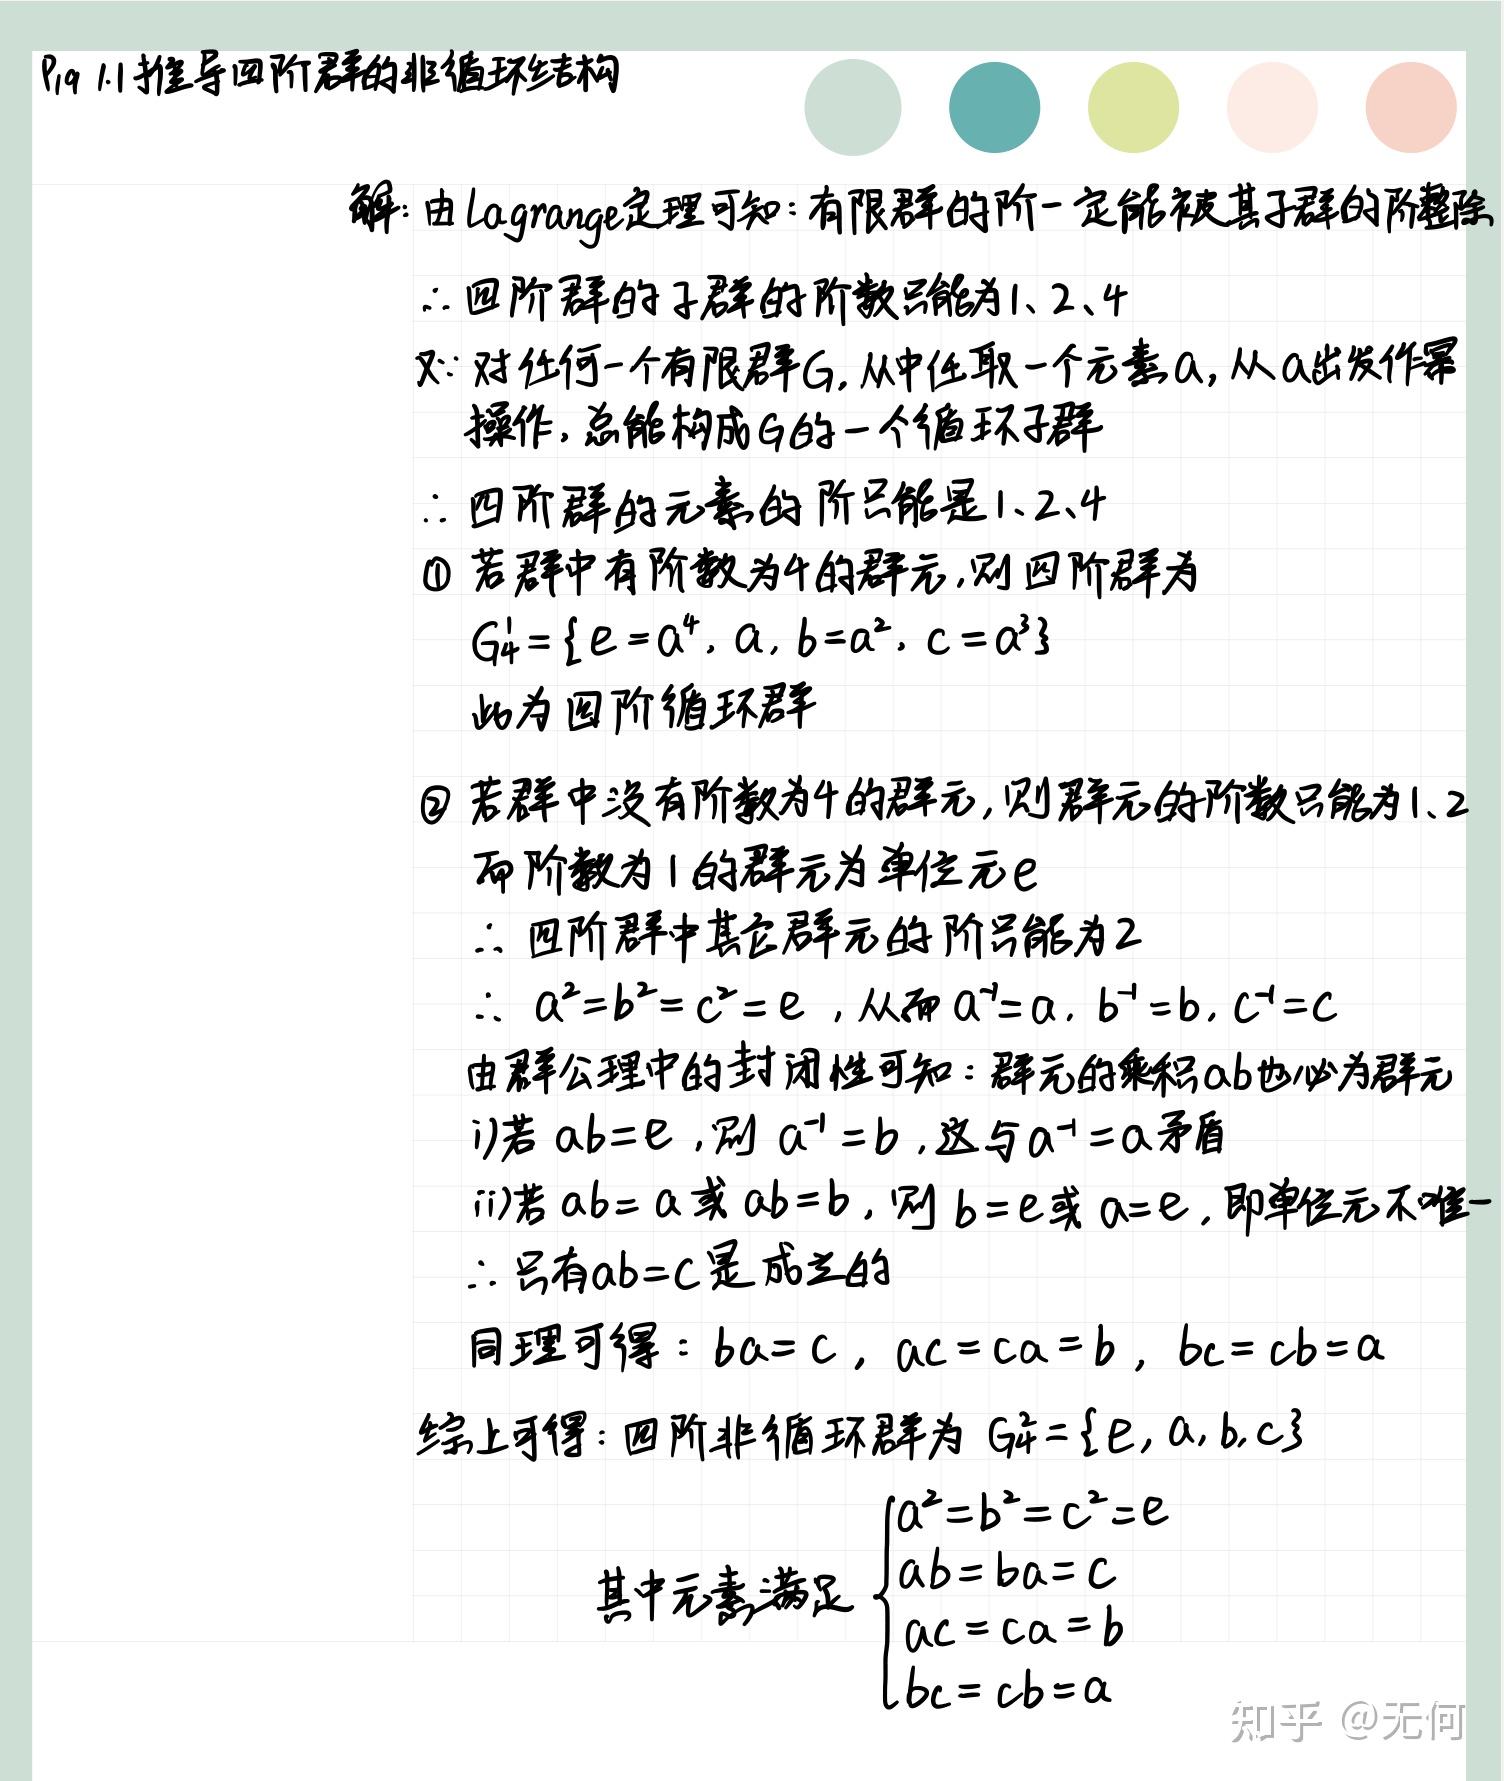 P19 1.1 推导四阶群的非循环结构
解: 由Lagrange定理可知:有限群的阶一定能被其子群的阶整除
∴ 四阶群的子群的阶数只能为1、2、4
又∵ 对任何一个有限群G, 从中任取一个元素a, 从a出发作幂
操作, 总能构成G的一个循环子群
∴ 四阶群的元素的阶只能是1、2、4
① 若群中有阶数为4的群元,则四阶群为
G₄¹={e=a⁴, a, b=a², c=a³}
此为四阶循环群
② 若群中没有阶数为4的群元,则群元的阶数只能为1、2
而阶数为1的群元为单位元e
∴ 四阶群中其它群元的阶只能为2
∴ a²=b²=c²=e ,从而a⁻¹=a, b⁻¹=b, c⁻¹=c
由群公理中的封闭性可知:群元的乘积ab也必为群元
i)若 ab=e ,则 a⁻¹=b ,这与a⁻¹=a矛盾
ii)若ab=a或ab=b,则b=e或a=e,即单位元不唯一
∴只有ab=c是成立的
同理可得:ba=c, ac=ca=b, bc=cb=a
综上可得:四阶非循环群为 G₄²={e, a, b, c}
其中元素满足
a²=b²=c²=e
ab=ba=c
ac=ca=b
bc=cb=a
知乎 @无何